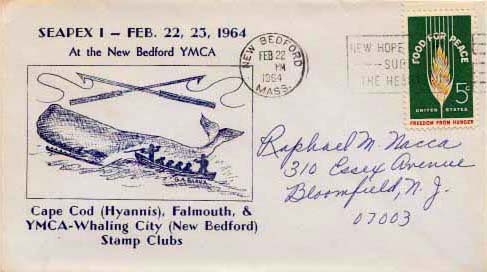 SEAPEX I — FEB. 22, 23, 1964
At the New Bedford YMCA
Cape Cod (Hyannis), Falmouth, &
YMCA-Whaling City (New Bedford)
Stamp Clubs
NEW BEDFORD
FEB 22
PM
1964
MASS.
NEW HOPE
THE
FOOD FOR PEACE
5c
UNITED STATES
FREEDOM FROM HUNGER
Raphael M. Nacca
310 Essex Avenue
Bloomfield, N. J.
07003